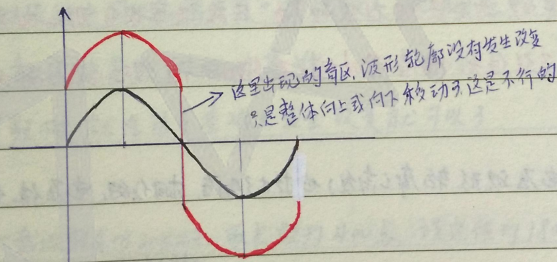 这里出现的盲区,波形轮廓没有发生改变
只是整体向上或向下移动了这是不行的